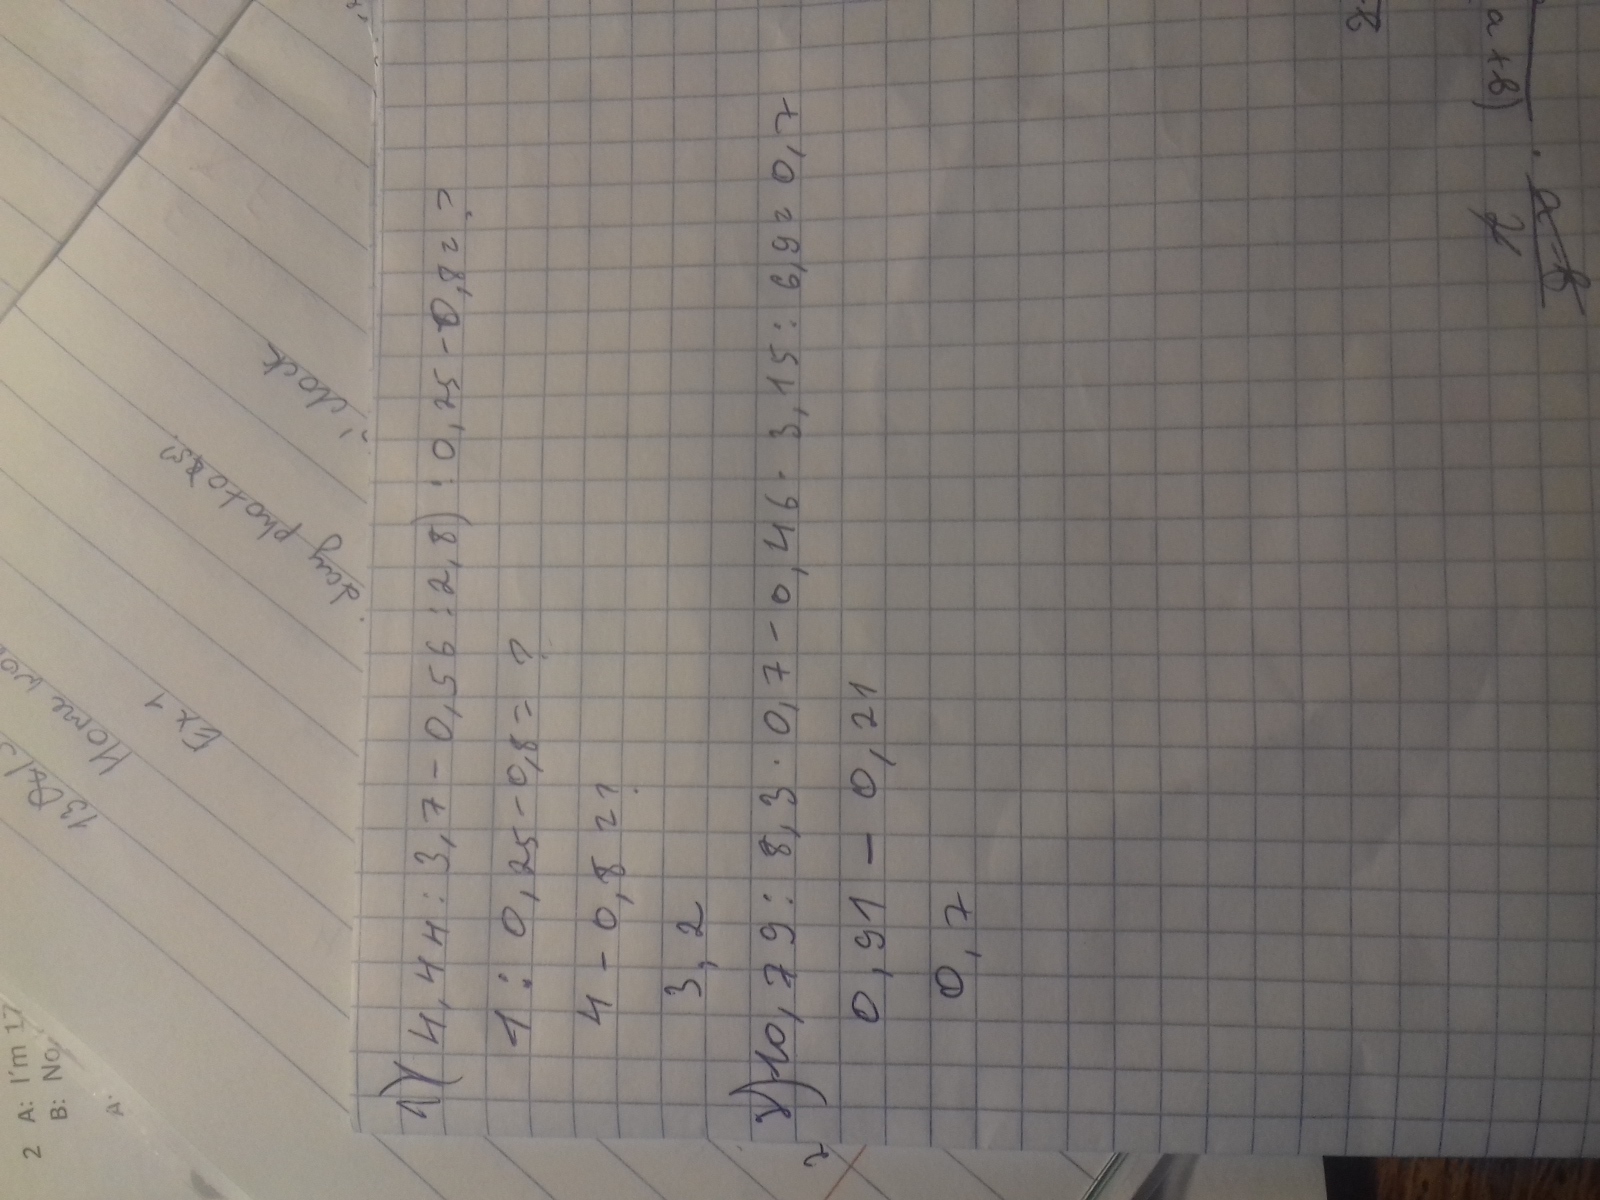 1) (4,44 : 3,7 - 0,56 : 2,8) : 0,25 - 0,8 = ?
1 : 0,25 - 0,8 = ?
4 - 0,8 = ?
3,2
2) 10,79 : 8,3 · 0,7 - 0,46 · 3,15 : 6,9 = 0,7
0,91 - 0,21
0,7
a + 8)
2 A: I'm 17
B: No,
A:
Home
Ex 1
day photo